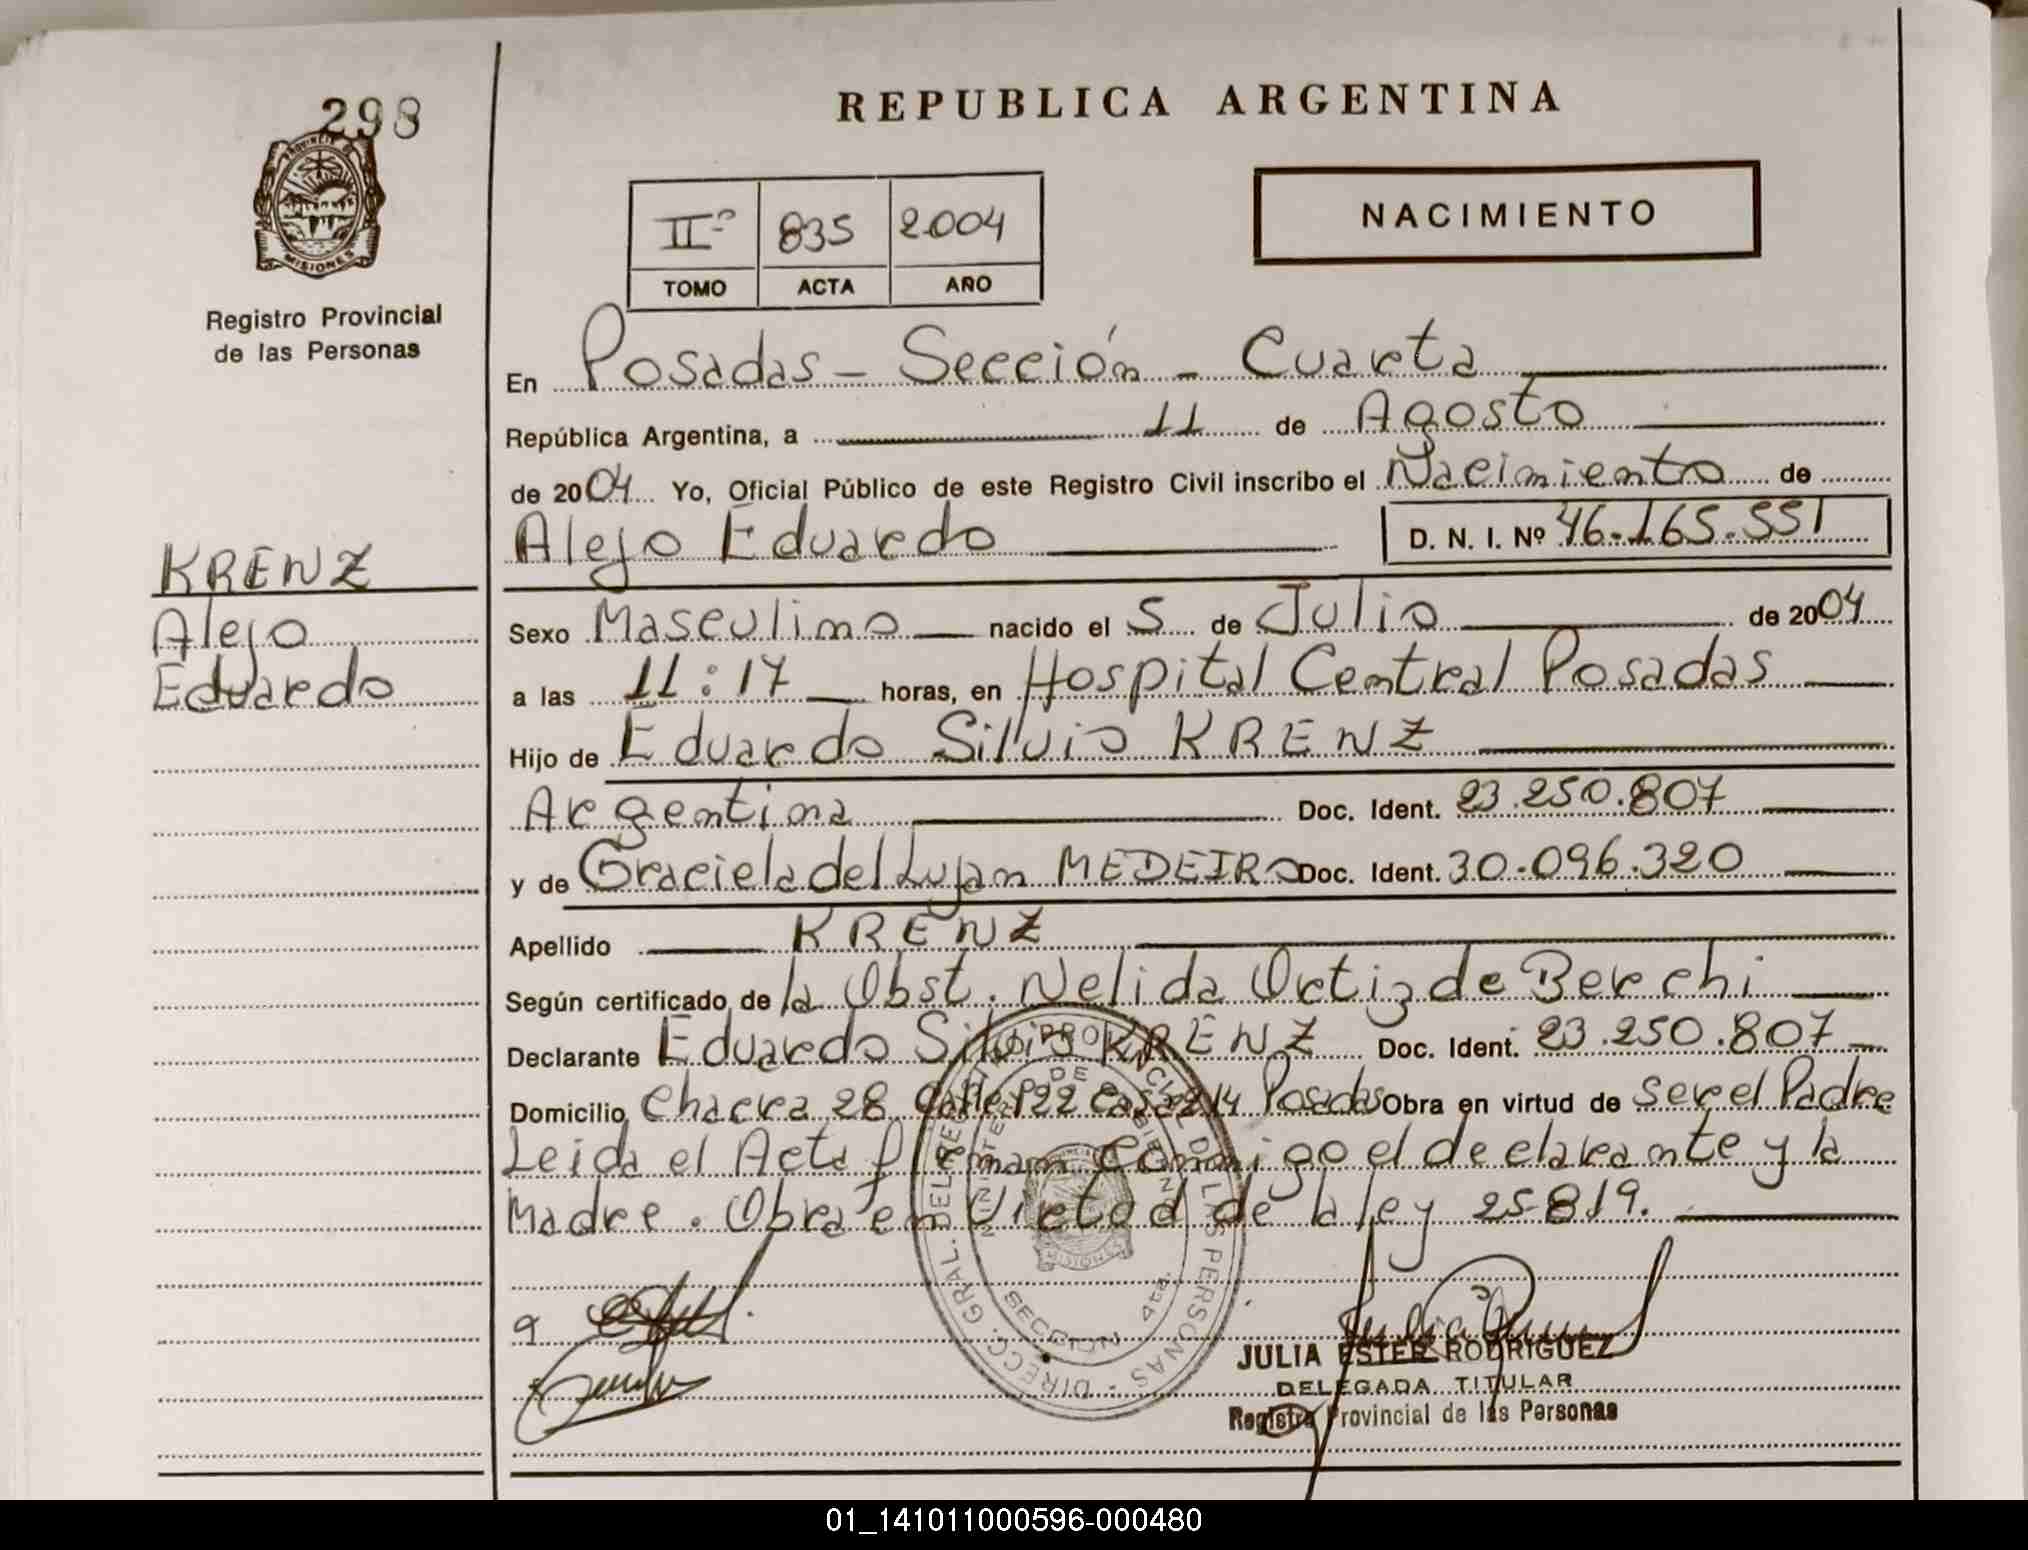 298
REPUBLICA ARGENTINA
PROVINCIA DE MISIONES
Registro Provincial
de las Personas
IIº 835 2.004
TOMO ACTA AÑO
NACIMIENTO
En Posadas - Sección - Cuarta
República Argentina, a 11 de Agosto
de 2004 Yo, Oficial Público de este Registro Civil inscribo el Nacimiento de
Alejo Eduardo D. N. I. Nº 46.165.551
KRENZ
Alejo
Eduardo
Sexo Masculino nacido el 5 de Julio de 2004
a las 11:17 horas, en Hospital Central Posadas
Hijo de Eduardo Silvio KRENZ
Argentina Doc. Ident. 23.250.807
y de Graciela del Lujan MEDEIRO Doc. Ident. 30.096.320
Apellido KRENZ
Según certificado de la Obst. Nelida Ortiz de Berchi
Declarante Eduardo Silvio KRENZ Doc. Ident. 23.250.807
Domicilio Chacra 28 Calle 122 Casa 214 Posadas Obra en virtud de ser el Padre
Leida el Acta firman conmigo el declarante y la
Madre. Obra en Virtud de la ley 25.819.
DIRECC. GRAL. DEL REGISTRO PROVINCIAL DE LAS PERSONAS
MINISTERIO DE GOBIERNO
MISIONES
SECCION 4ta.
JULIA ESTER RODRIGUEZ
DELEGADA TITULAR
Registro Provincial de las Personas
01_141011000596-000480